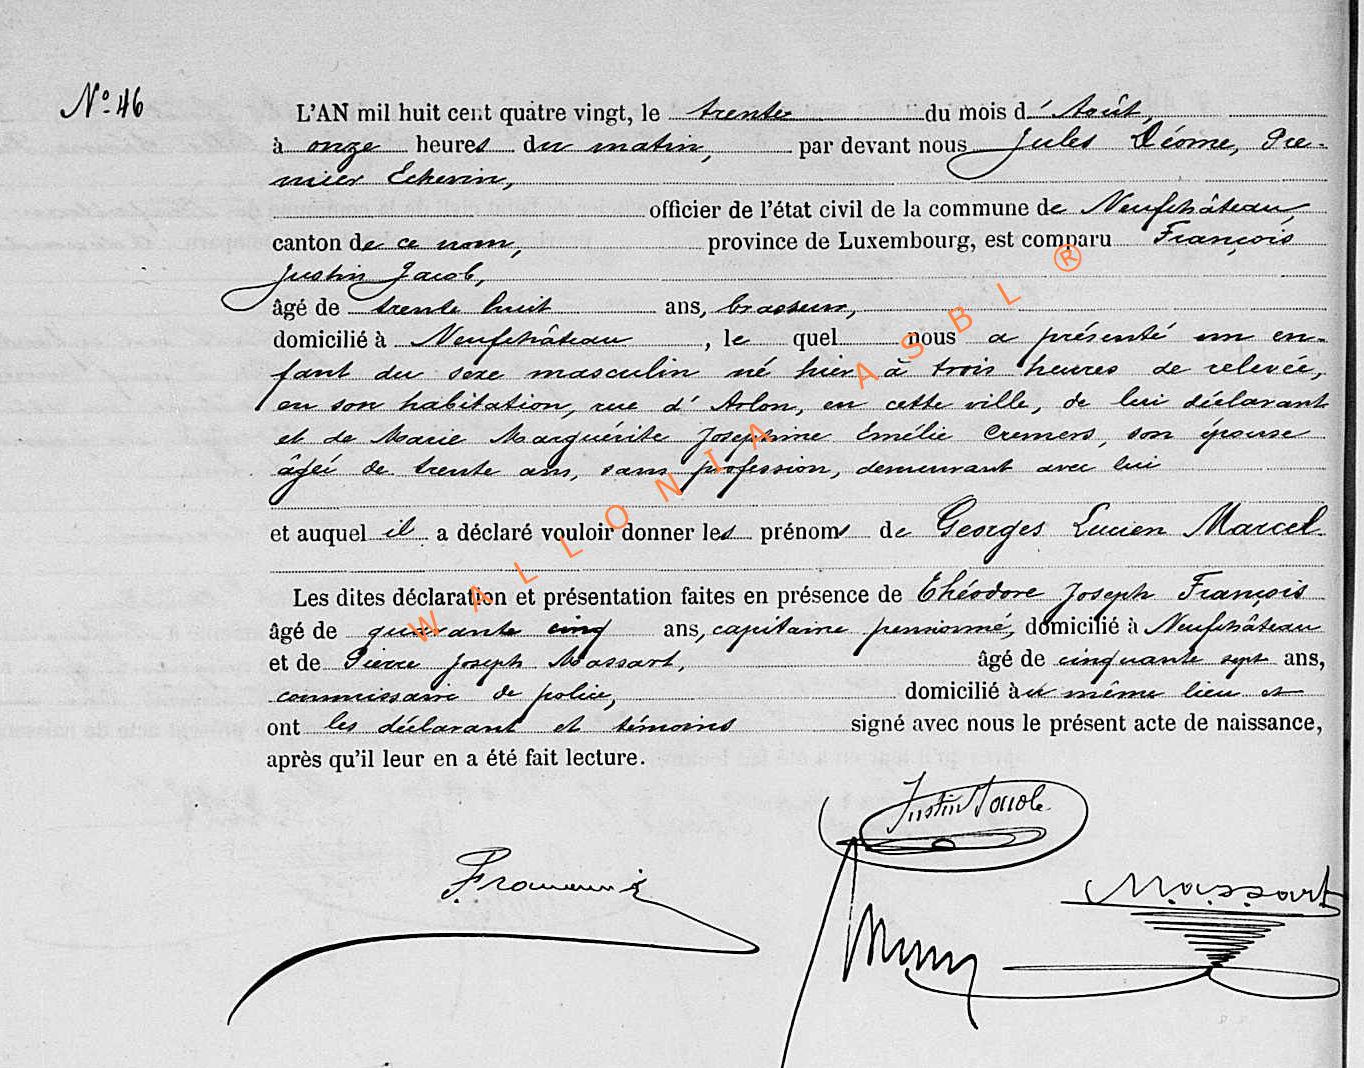 N° 46
L'AN mil huit cent quatre vingt, le trente du mois d'Août,
à onze heures du matin, par devant nous Jules Déome, Pre-
mier Echevin,
officier de l'état civil de la commune de Neufchâteau,
canton de ce nom, province de Luxembourg, est comparu François
Justin Jacob,
âgé de trente huit ans, brasseur,
domicilié à Neufchâteau, le quel nous a présenté un en-
fant du sexe masculin né hier à trois heures de relevée,
en son habitation, rue d'Arlon, en cette ville, de lui déclarant
et de Marie Marguérite Josephine Emélie Cremers, son épouse
âgée de trente ans, sans profession, demeurant avec lui
et auquel il a déclaré vouloir donner les prénoms de Georges Lucien Marcel
Les dites déclaration et présentation faites en présence de Théodore Joseph François
âgé de quarante cinq ans, capitaine pensionné, domicilié à Neufchâteau
et de Pierre Joseph Massart, âgé de cinquante sept ans,
commissaire de police, domicilié au même lieu et
ont les déclarant et témoins signé avec nous le présent acte de naissance,
après qu'il leur en a été fait lecture.
Justin Jacob
Massart
WALLONIA ASBL ®